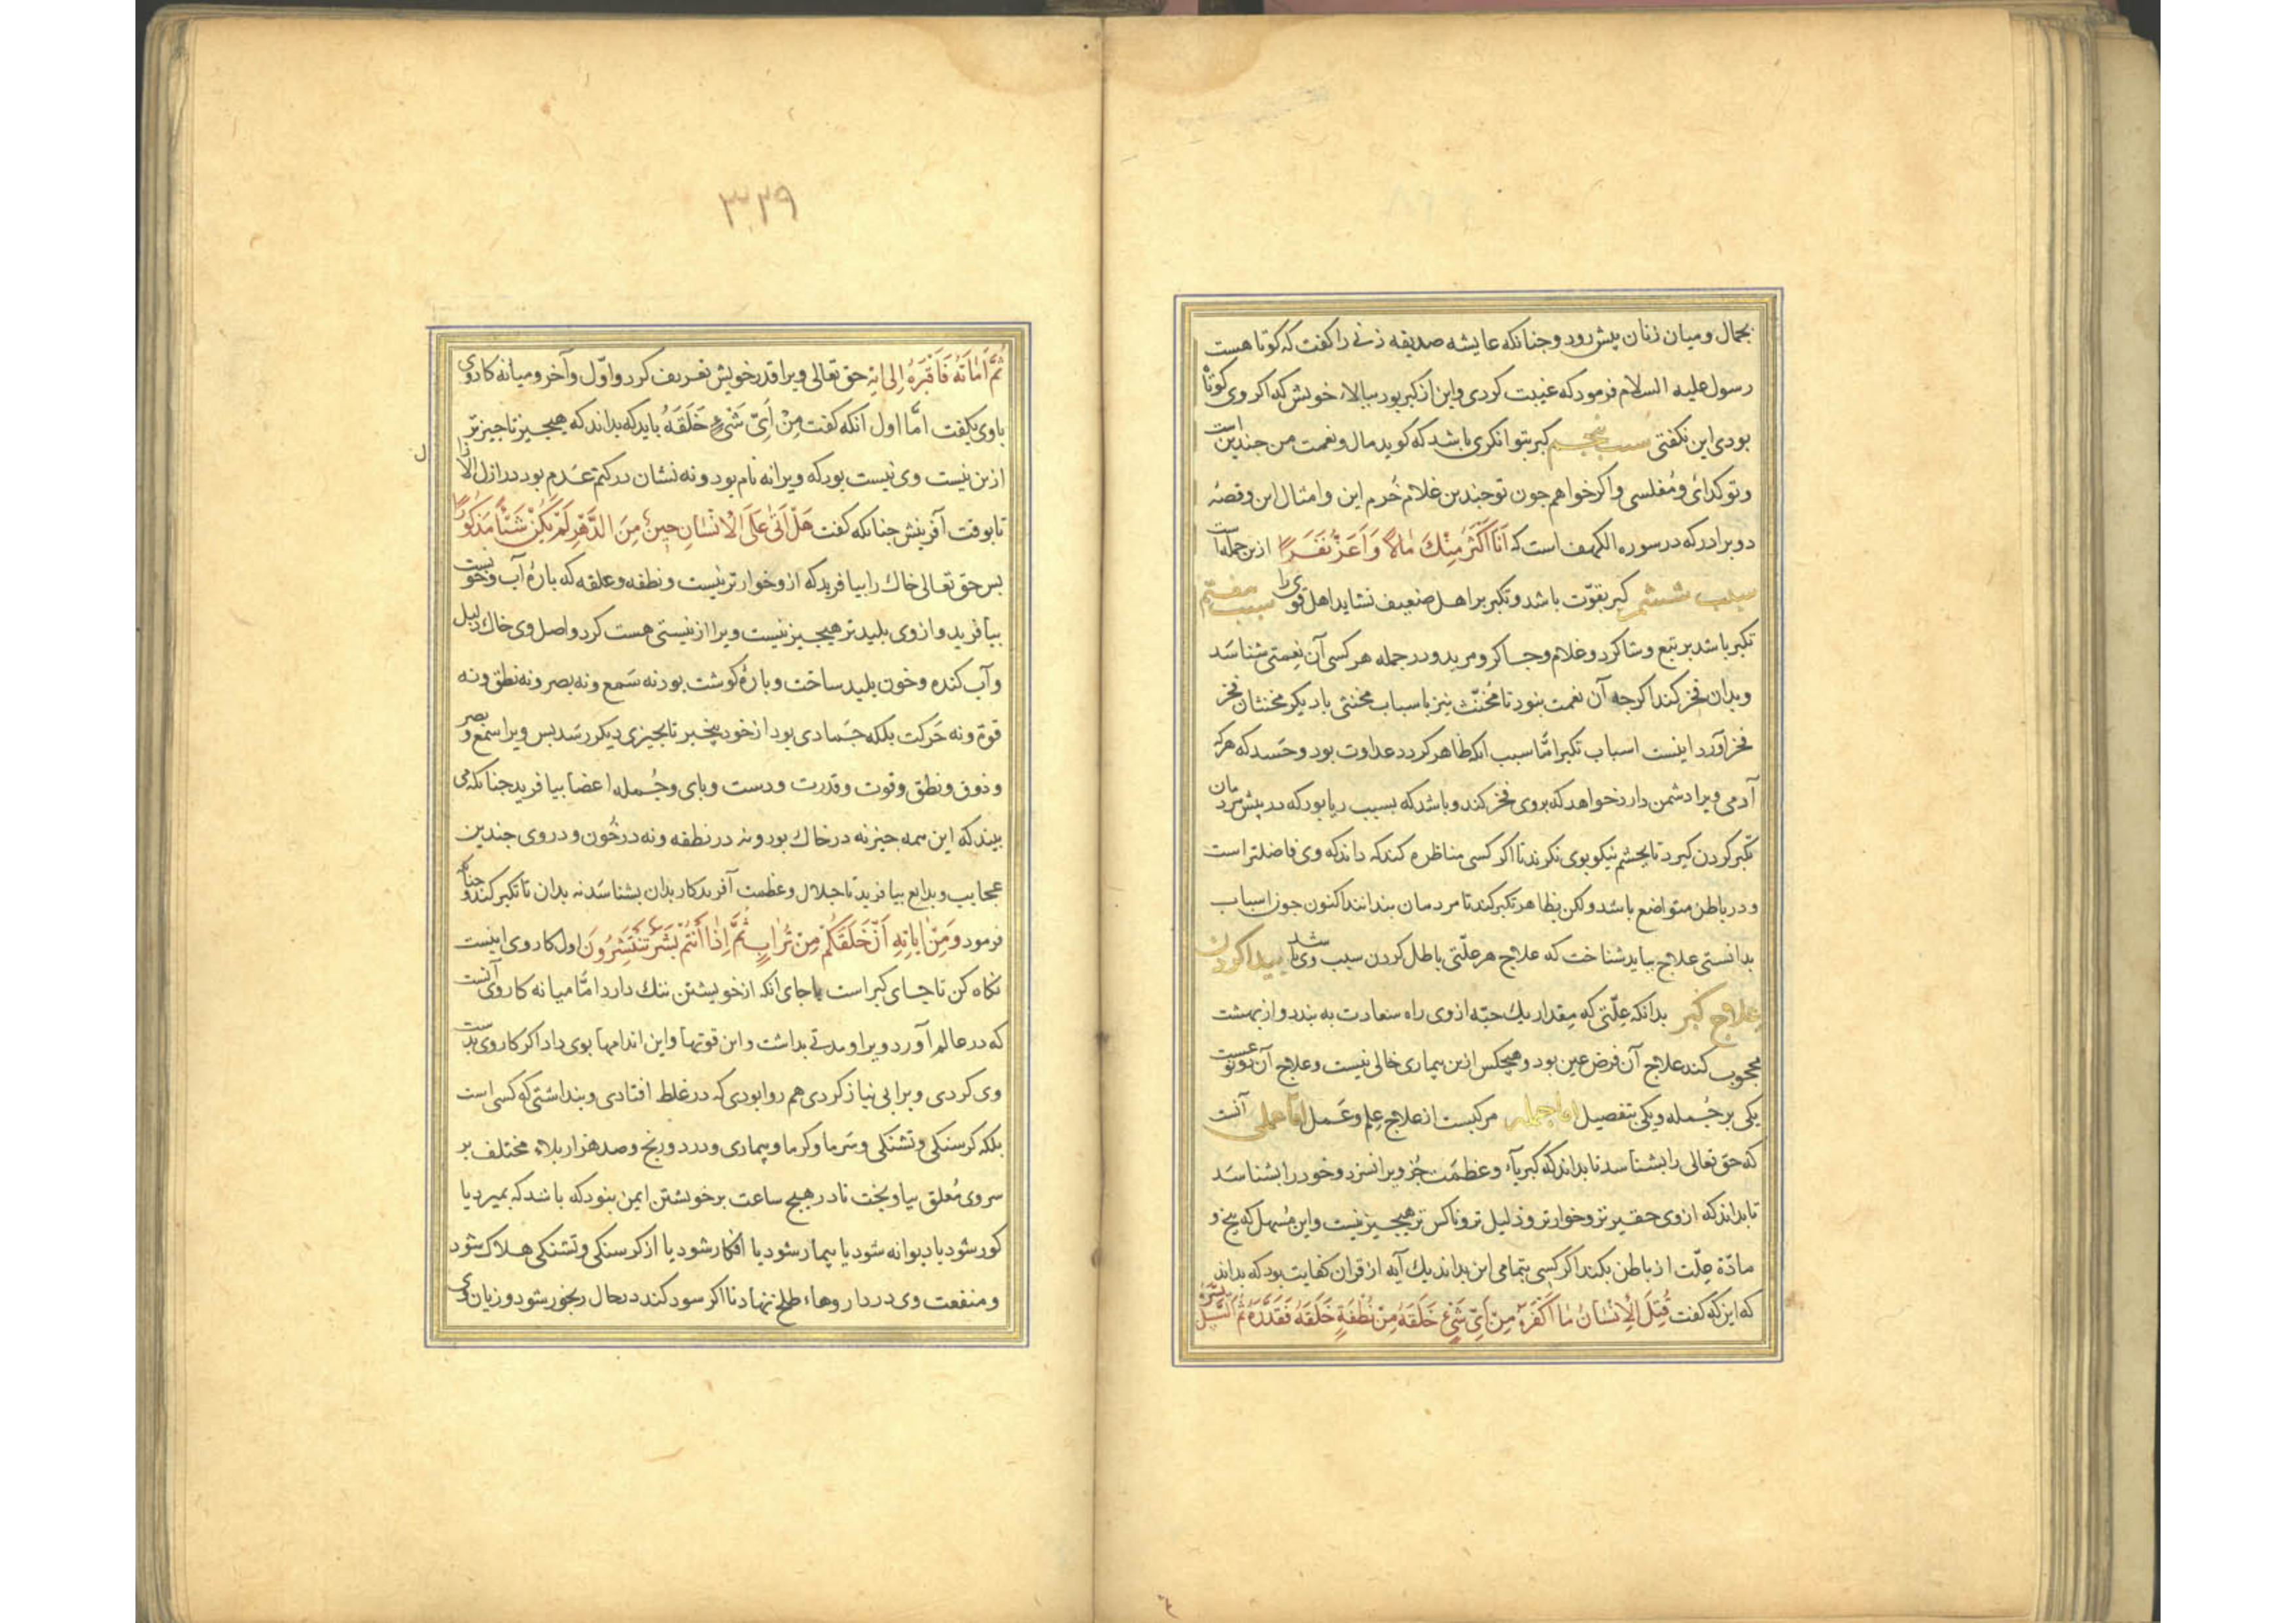 بجمال ومیان زنان بیش رود وجنانکه عایشه صدیقه زنی را کفت که کوتا هست
رسول علیه السلام فرمود که غیبت کردی واین از کبر بود ببالاء خویش که اکر وی کوتاه
بودی این نکفتی سبب بنجم کبر بتوانکری باشد که کوید مال ونعمت من جندین است
وتو کدائ ومُفلسی واکر خواهم جون تو جندین غلام خُرم این وامثال این وقصهٔ
دو برادر که در سوره الکهف است که اَنَا اَکْثَرُ مِنْكَ مَالًا وَاَعَزُّ نَفَرًا ازین جمله است
سبب ششم کبر بقوّت باشد وتکبر بر اهل ضعیف نشاید اهل قوی را سبب هفتم
تکبر باشد بر تبع وشاکرد وغلام وجاکر ومرید ودر جمله هر کسی آن نعمتی شناسَد
وبدان فخر کند اکرجه آن نعمت بنود تا مُخنّث نیز باسباب مخنثی با دیکر مخنثان فخر
فخر آورد اینست اسباب تکبر امّا سبب انکه ظاهر کردد عداوت بود وحَسد که هرکه
آدمی ویرا دشمن دارد نخواهد که بروی فخر کند وباشد که بسبب ریا بود که در بیش مردمان
تکبّر کردن کیرد تا بجشم نیکو بوی نکرند تا اکر کسی مناظره کند که داند که وی فاضلتر است
ودر باطن متواضع باشد ولکن بظاهر تکبر کند تا مردمان بندانند اکنون جون اسباب
بدانستی علاج بباید شناخت که علاج هر علّتی باطل کردن سبب وی باشد بیدا کردن
علاج کبر بدانکه عِلّتی که مِقدار یك حبّه از وی راه سعادت به بندد واز بهشت
محجوب کند علاج آن فرض عین بود وهیجکس ازین بیماری خالی نیست وعلاج آن دو نوعست
یکی بر جُمله ویکی بتفصیل اما جمله مرکبست از علاج علم وعَمل امّا علمی آنست
که حق تعالی را بشناسد تا بداند که کبریآء وعظمَت جُز ویرا نسزد وخود را بشناسَد
تا بداند که از وی حقیر تر وخوار تر وذلیل تر وناکس تر هیجیز نیست واین مُسهل که بیخ و
مادّهٔ عِلّت از باطن بکند اکر کسی بتمامی این بداند یك آیه از قران کفایت بود که بداند
که این که کفت قُتِلَ الْاِنْسَانُ مَا اَکْفَرَهُ مِنْ اَیِّ شَیْءٍ خَلَقَهُ مِنْ نُطْفَةٍ خَلَقَهُ فَقَدَّرَهُ ثُمَّ السَّبِیلَ یَسَّرَهُ
٣٢٩
ثُمَّ اَمَاتَهُ فَاَقْبَرَهُ اِلی ایه حق تعالی ویرا قدر خویش تعریف کرد واوّل وآخر ومیانه کار وی
باوی بکفت امّا اول انکه کفت مِنْ اَیِّ شَیْءٍ خَلَقَهُ باید که بداند که هیجیز ناجیز تر
ازین نیست وی نیست بود که ویرا نه نام بود ونه نشان در کتم عَدم بود در ازل الازال
تا بوقت آفرینش جنانکه کفت هَلْ اَتٰی عَلَی الْاِنْسَانِ حِینٌ مِنَ الدَّهْرِ لَمْ یَکُنْ شَیْئًا مَذْکُورًا
بس حق تعالی خاك را بیافرید که ازو خوار تر نیست ونطفه وعلقه که بارهٔ آب وخونست
بیافرید واز وی بلید تر هیجیز نیست ویرا از نیستی هست کرد واصل وی خاك ذلیل
وآب کنده وخون بلید ساخت وبارهٔ کوشت بود نه سَمع ونه بصر ونه نطق ونه
قوة ونه حَرکت بلکه جَمادی بود از خود بیخبر تا بجیزی دیکر رسَد بس ویرا سمع وبصر
وذوق ونطق وقوت وقدرت ودست وبای وجُمله اعضا بیافرید جنانکه می
بیند که این همه جیز نه در خاك بود ونه در نطفه ونه در خُون ودر وی جندین
عجایب وبدایع بیافرید تا جلال وعظمت آفریدکار بدان بشناسَد نه بدان تا تکبر کند وجنانکه
فرمود وَمِنْ اٰیَاتِهِ اَنْ خَلَقَکُمْ مِنْ تُرَابٍ ثُمَّ اِذَا اَنْتُمْ بَشَرٌ تَنْتَشِرُونَ اول کار وی اینست
نکاه کن تا جای کبر است یا جای انکه از خویشتن ننك دارد امّا میانه کار وی آنست
که در عالم آورد ویرا ومدتی بداشت واین قوتها واین اندامها بوی داد اکر کار وی بدست
وی کردی ویرا بی نیاز کردی هم روا بودی که در غلط افتادی وبنداشتی که کسی است
بلکه کرسنکی وتشنکی وسَرما وکرما وبیماری ودرد ورنج وصد هزار بلاء مختلف بر
سر وی مُعلق بیاویخت تا در هیج ساعت بر خویشتن ایمن بنود که باشد که بمیرد یا
کور شود یا دیوانه شود یا بیمار شود یا افکار شود یا از کرسنکی وتشنکی هلاك شود
ومنفعت وی در داروهاء طلخ نهاد تا اکر سود کند در حال رنجور شود وزیان وی